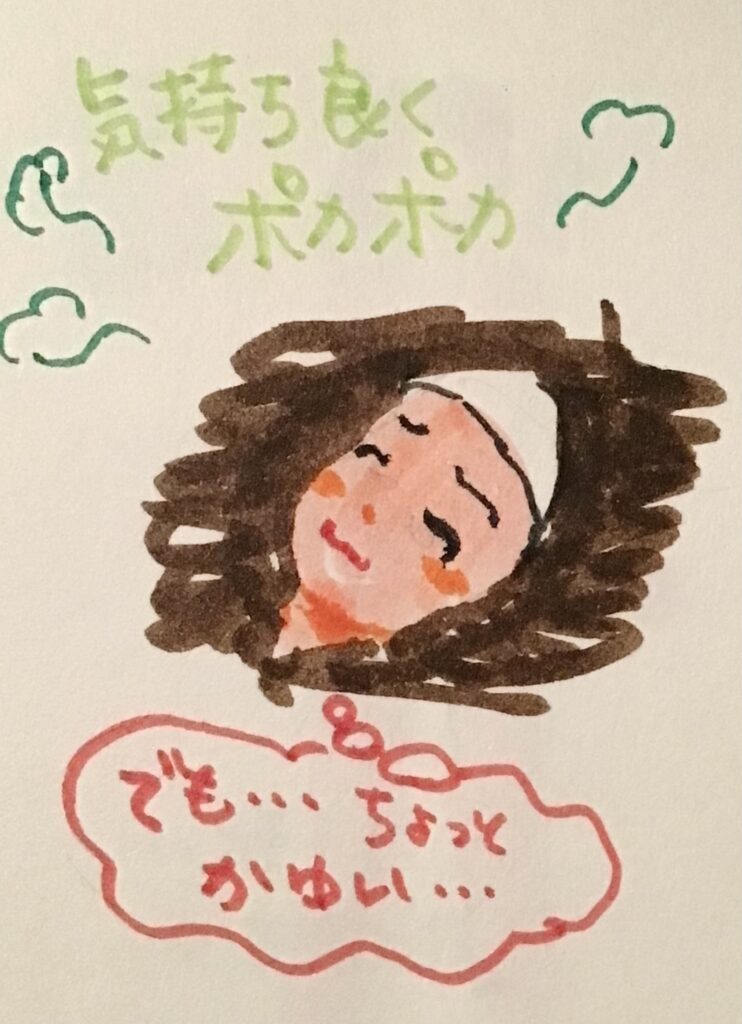 気持ち良く
ポカポカ
でも... ちょっと
かゆい...